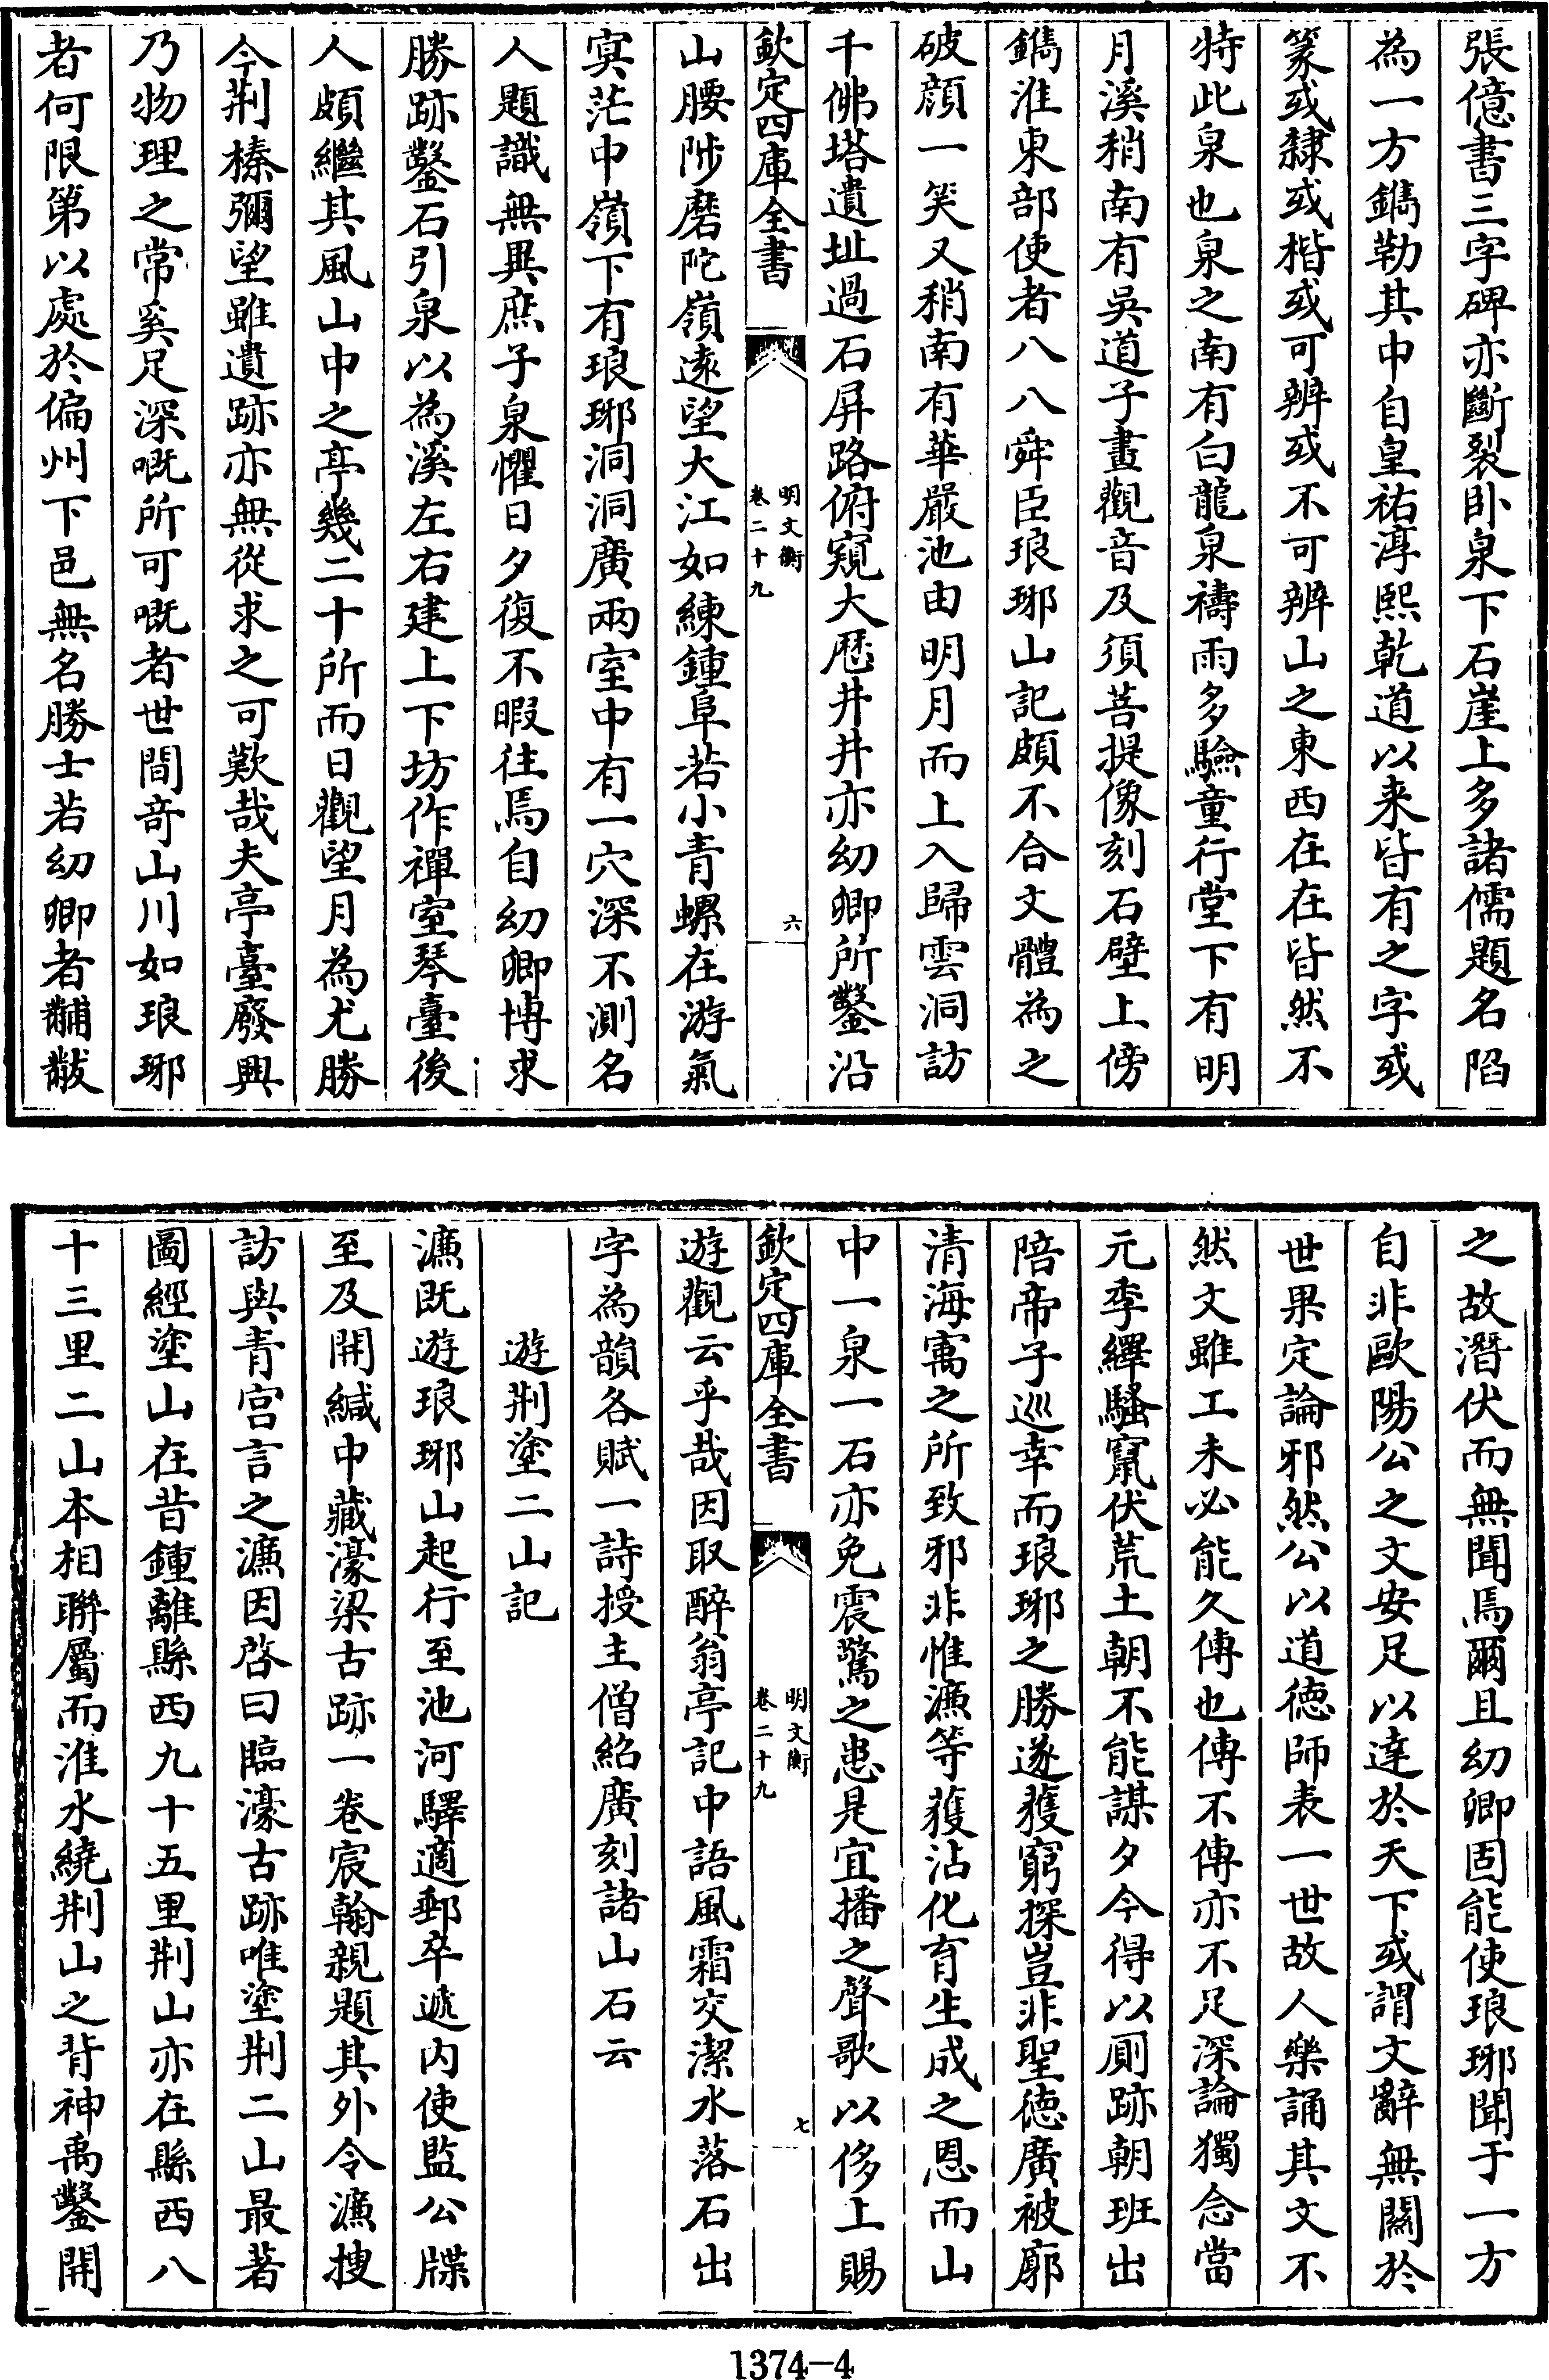 張億書三字碑亦斷裂卧泉下石崖上多諸儒題名陷
為一方鐫勒其中自皇祐淳熙乾道以来皆有之字或
篆或隸或楷或可辨或不可辨山之東西在在皆然不
特此泉也泉之南有白龍泉禱雨多驗童行堂下有明
月溪稍南有吳道子畫觀音及須菩提像刻石壁上傍
鐫淮東部使者八八舜臣琅琊山記頗不合文體為之
破顔一笑又稍南有華嚴池由明月而上入歸雲洞訪
千佛塔遺址過石屏路俯窺大厯井井亦幼卿所鑿沿
欽定四庫全書
明文衡
卷二十九
六
山腰陟磨陀嶺遠望大江如練鍾阜若小青螺在游氣
寞茫中嶺下有琅琊洞洞廣兩室中有一穴深不測名
人題識無異庶子泉懼日夕復不暇往焉自幼卿博求
勝跡鑿石引泉以為溪左右建上下坊作禪室琴臺後
人頗繼其風山中之亭幾二十所而日觀望月為尤勝
今荆榛彌望雖遺跡亦無從求之可歎哉夫亭臺廢興
乃物理之常奚足深嘅所可嘅者世間竒山川如琅琊
者何限第以處於偏州下邑無名勝士若幼卿者黼黻
之故潛伏而無聞焉爾且幼卿固能使琅琊聞于一方
自非歐陽公之文安足以達於天下或謂文辭無關於
世果定論邪然公以道徳師表一世故人樂誦其文不
然文雖工未必能久傳也傳不傳亦不足深論獨念當
元季繹騷竄伏荒土朝不能謀夕今得以厠跡朝班出
陪帝子巡幸而琅琊之勝遂獲窮探豈非聖徳廣被廓
清海㝢之所致邪非惟濂等獲沾化育生成之恩而山
中一泉一石亦免震驚之患是宜播之聲歌以侈上賜
欽定四庫全書
明文衡
卷二十九
七
遊觀云乎哉因取醉翁亭記中語風霜交潔水落石出
字為韻各賦一詩授主僧紹廣刻諸山石云
遊荆塗二山記
濂既遊琅琊山起行至池河驛適郵卒遞内使監公牒
至及開緘中藏濠梁古跡一卷宸翰親題其外令濂搜
訪與青宫言之濂因啓曰臨濠古跡唯塗荆二山最著
圖經塗山在昔鍾離縣西九十五里荆山亦在縣西八
十三里二山本相聯屬而淮水繞荆山之背神禹鑿開
1374—4